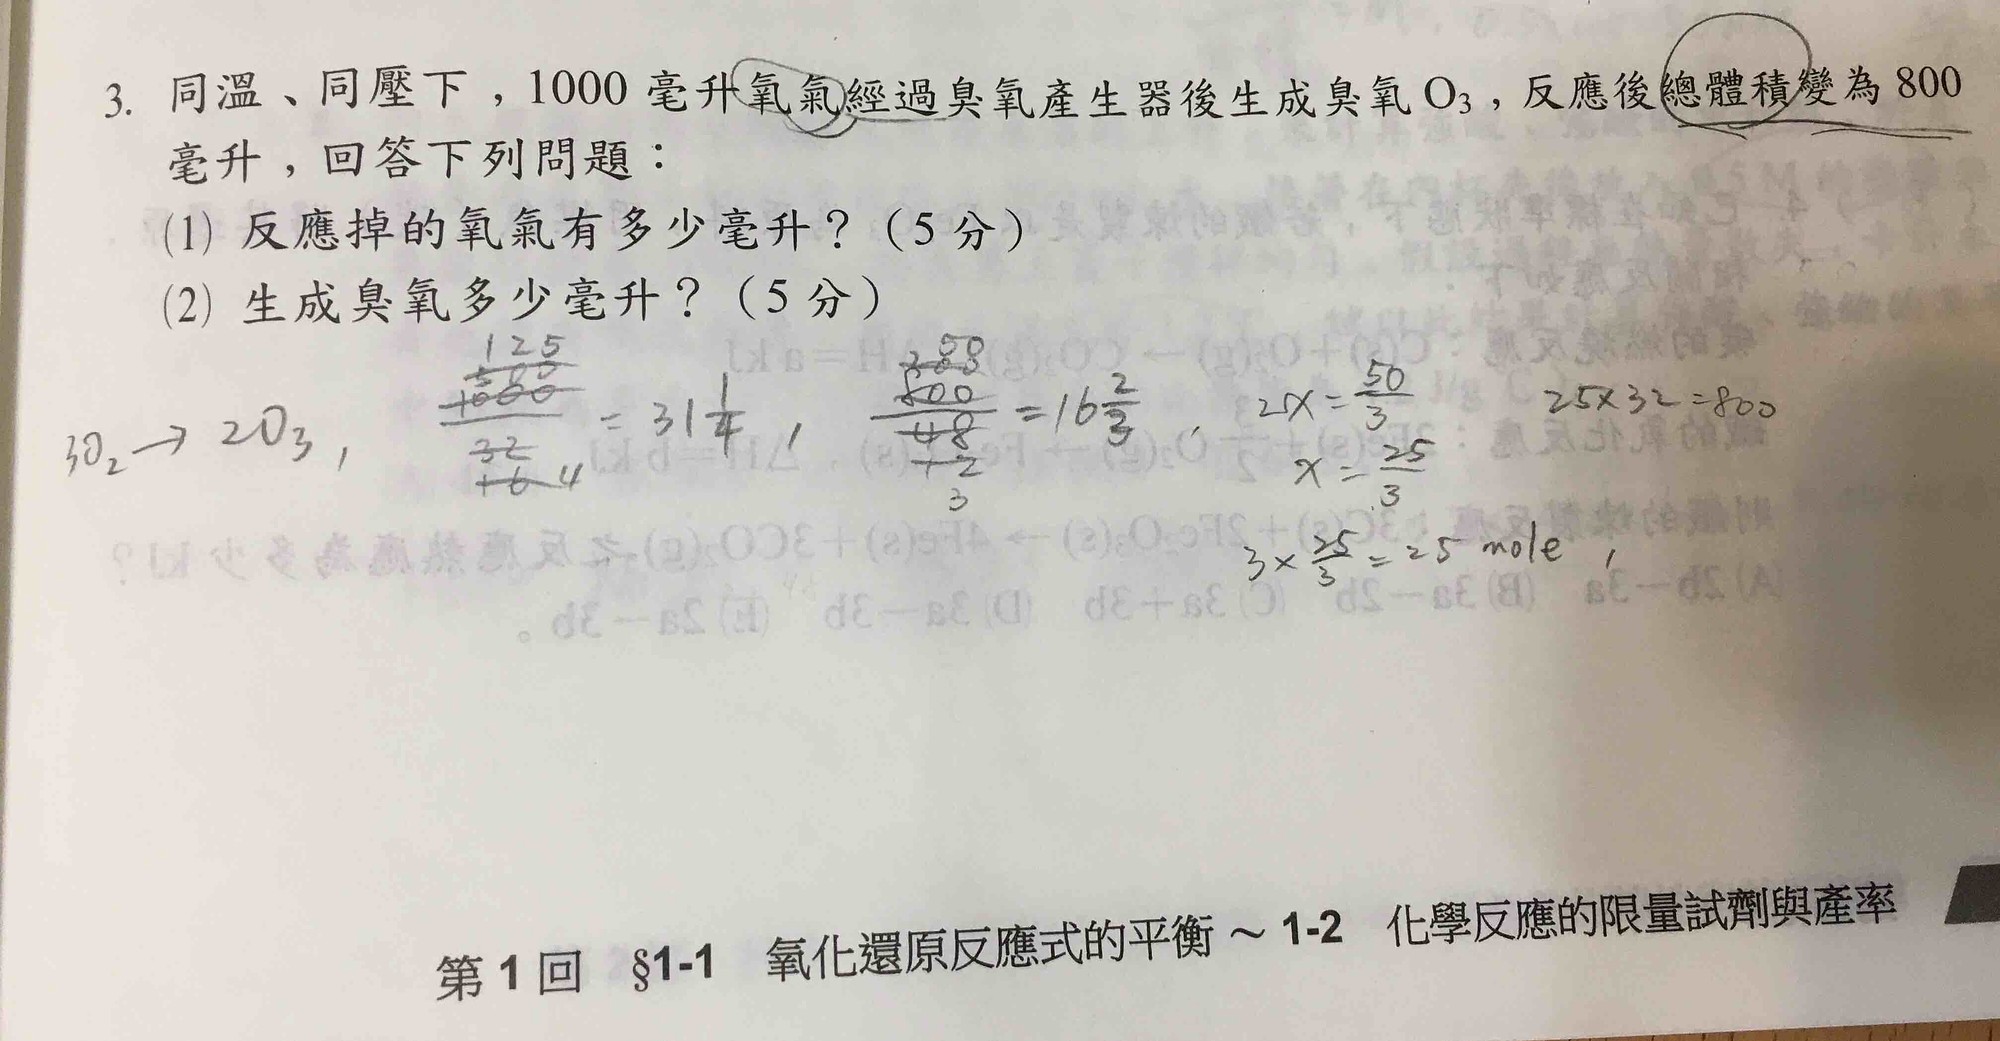 3. 同溫、同壓下，1000 毫升氧氣經過臭氧產生器後生成臭氧 O₃，反應後總體積變為 800
毫升，回答下列問題：
(1) 反應掉的氧氣有多少毫升？（5 分）
(2) 生成臭氧多少毫升？（5 分）
3O₂ → 2O₃ ,
125
500
1000
32
16 4
= 31 1/4 ,
50
200
800
48
12
3
= 16 2/3 ,
2x = 50/3
25×32=800
x = 25/3
3 × 25/3 = 25 mole ,
第 1 回 §1-1 氧化還原反應式的平衡 ~ 1-2 化學反應的限量試劑與產率